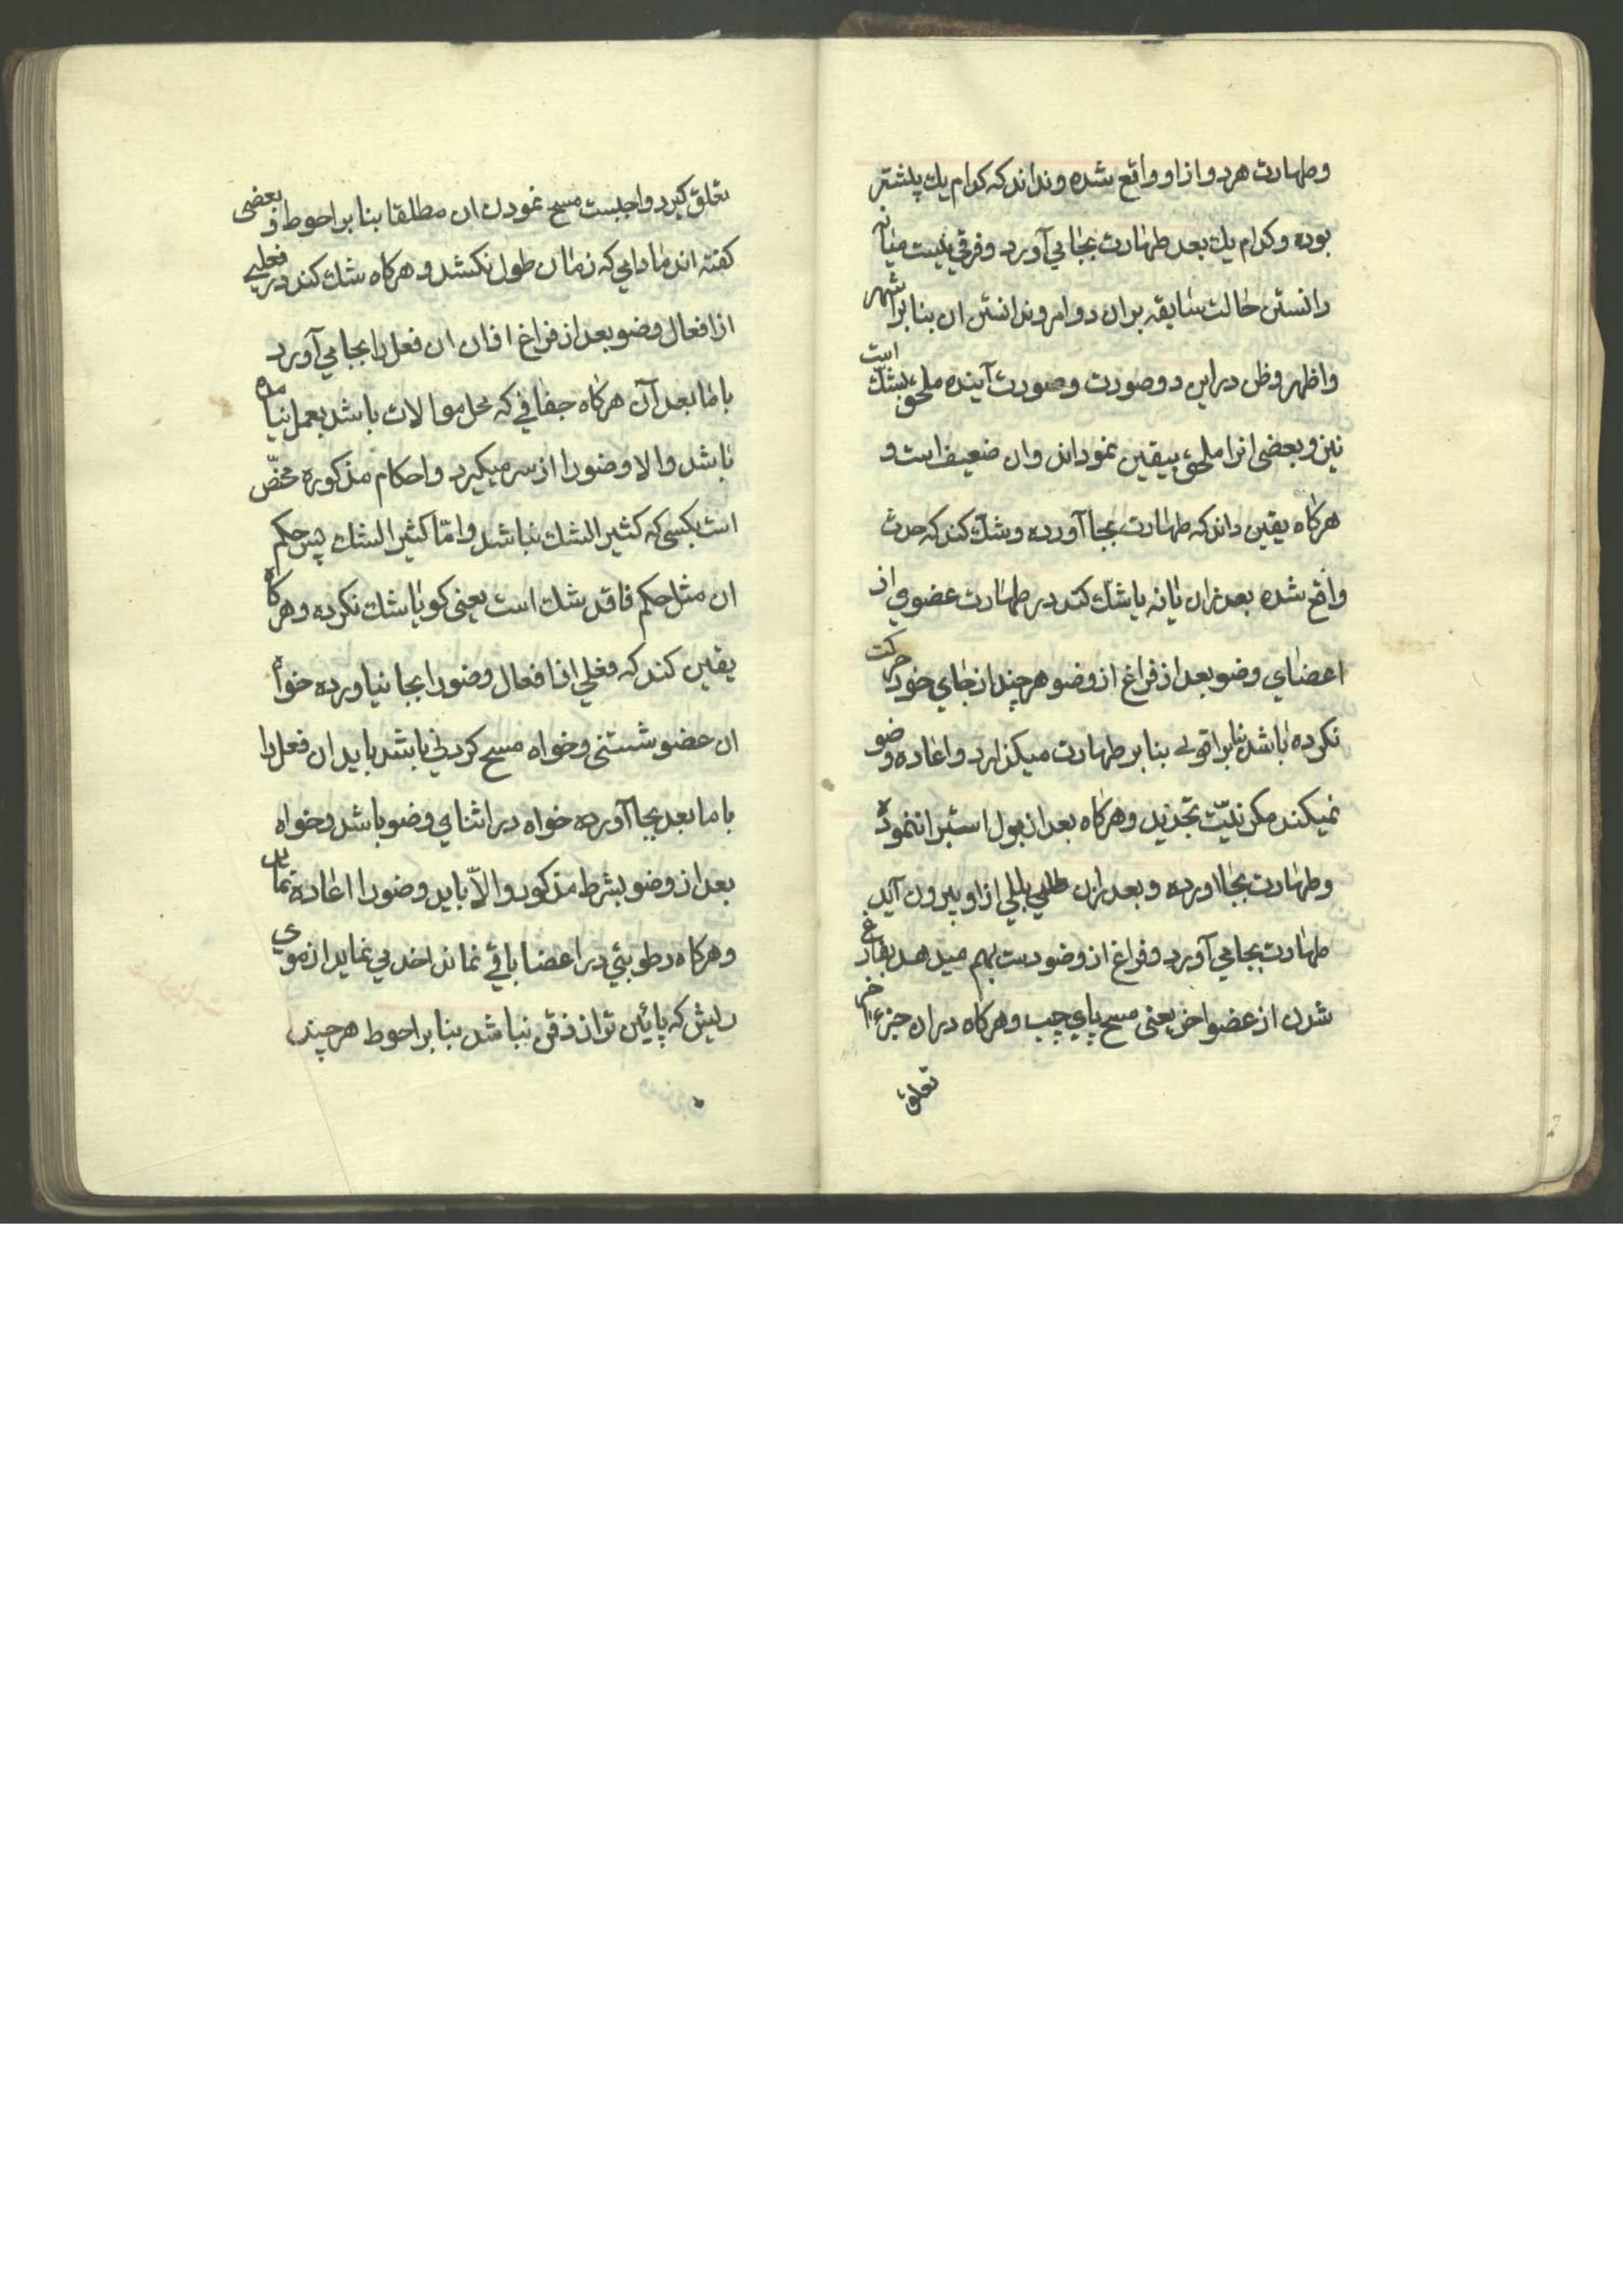 وطهارت هردو ازاو واقع شده ونداند که کدام یك پیشتر
بوده وکدام یك بعد طهارت بجا می آورد وفرقی نیست میانه
دانستن حالت سابقه بران دو امر وندانستن ان بنا براشهر
واظهر وظن دراین دوصورت وصورت آینده ملحق بشك است
نیز وبعضی انرا ملحق بیقین نموداند وان ضعیف است و
هرکاه یقین داند که طهارت بجا آورده وشك کند که حدث
واقع شده بعد ازان یا نه یا شك کند در طهارت عضوی از
اعضای وضو بعد از فراغ از وضو هرچند از جای خود حرکت
نکرده باشد بنابر اقوی بنا بر طهارت میکذارد واعاده وضو
نمیکند مکر بنیّت تجدید وهرکاه بعد از بول استبرا ننموده
وطهارت بجا اورده وبعد ازان بللی ازاو بیرون آید
طهارت بجا می آورد وفراغ از وضو دست بهم میدهد بفارغ
شدن از عضو اخر یعنی مسح پای چپ وهرکاه دران جزء اخر
تعلق
تعلق کیرد واجبست مسح نمودن ان مطلقا بنا بر احوط و بعضی
کفته اند مادامی که زمان طول نکشد وهرکاه شك کند در فعلی
از افعال وضو بعد از فراغ ازان ان فعل را بجا می آورد
با مابعد آن هرکاه جفافی که مخل موالات باشد بعمل نیامده
باشد والا وضو را از سر میکیرد واحکام مذکوره مختصّ
است بکسی که کثیر الشك نباشد وامّا کثیر الشك پس حکم
ان مثل حکم فاقد شك است یعنی کویا شك نکرده وهرکاه
یقین کند که فعلی از افعال وضو را بجا نیاورده خواه
ان عضو شستنی وخواه مسح کردنی باشد باید ان فعل را
با مابعد بجا آورده خواه در اثنای وضو باشد وخواه
بعد از وضو بشرط مذکور والاّ باید وضو را اعاده نماید
وهرکاه رطوبتی در اعضا باقی نماند اخذ می نماید از موی
ریش که پائین تر از ذقن نباشد بنا بر احوط هرچند